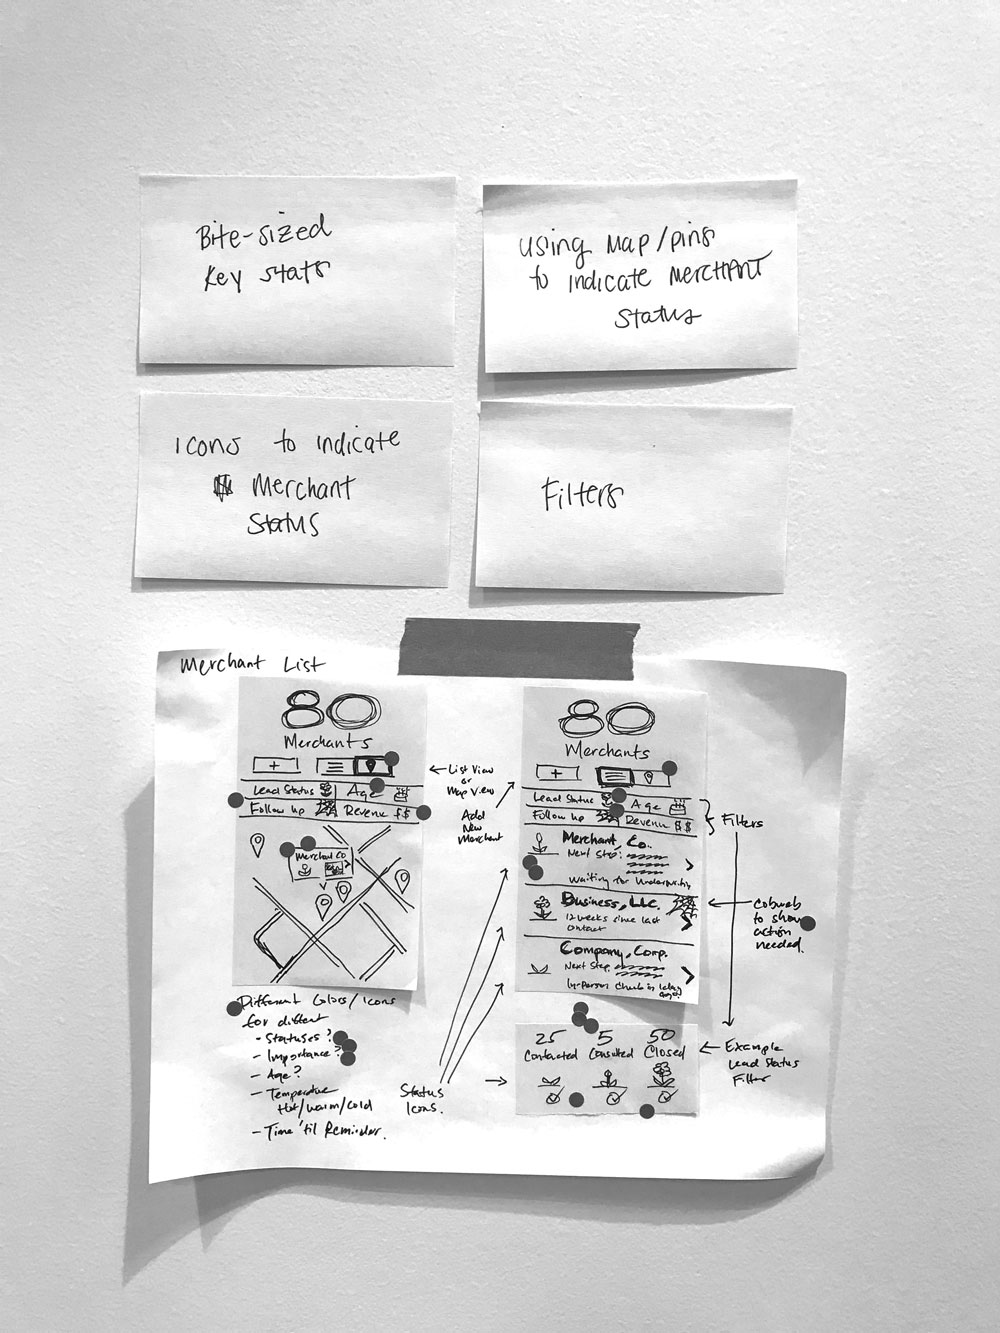 Bite-sized
Key stats
using Map/pins
to indicate Merchant
Status
Icons to indicate
Merchant
Status
Filters
Merchant List
80
Merchants
+
Lead Status
Age
Follow Up
Revenue $$
Merchant Co
List View
or
Map View
Add
New
Merchant
80
Merchants
+
Lead Status
Age
Follow Up
Revenue $$
Merchant, Co.
Next Step:
Waiting for Underwriting
Business, LLC.
12 weeks since last
contact
Company, Corp.
Next Step
In-person Check in
Filters
Cobweb
to show
action
needed.
Different Colors/Icons
for different
- Statuses?
- Importance?
- Age?
- Temperature
Hot/warm/cold
- Time 'til Reminder.
Status
Icons.
25 5 50
Contacted Consulted Closed
Example
Lead Status
Filter